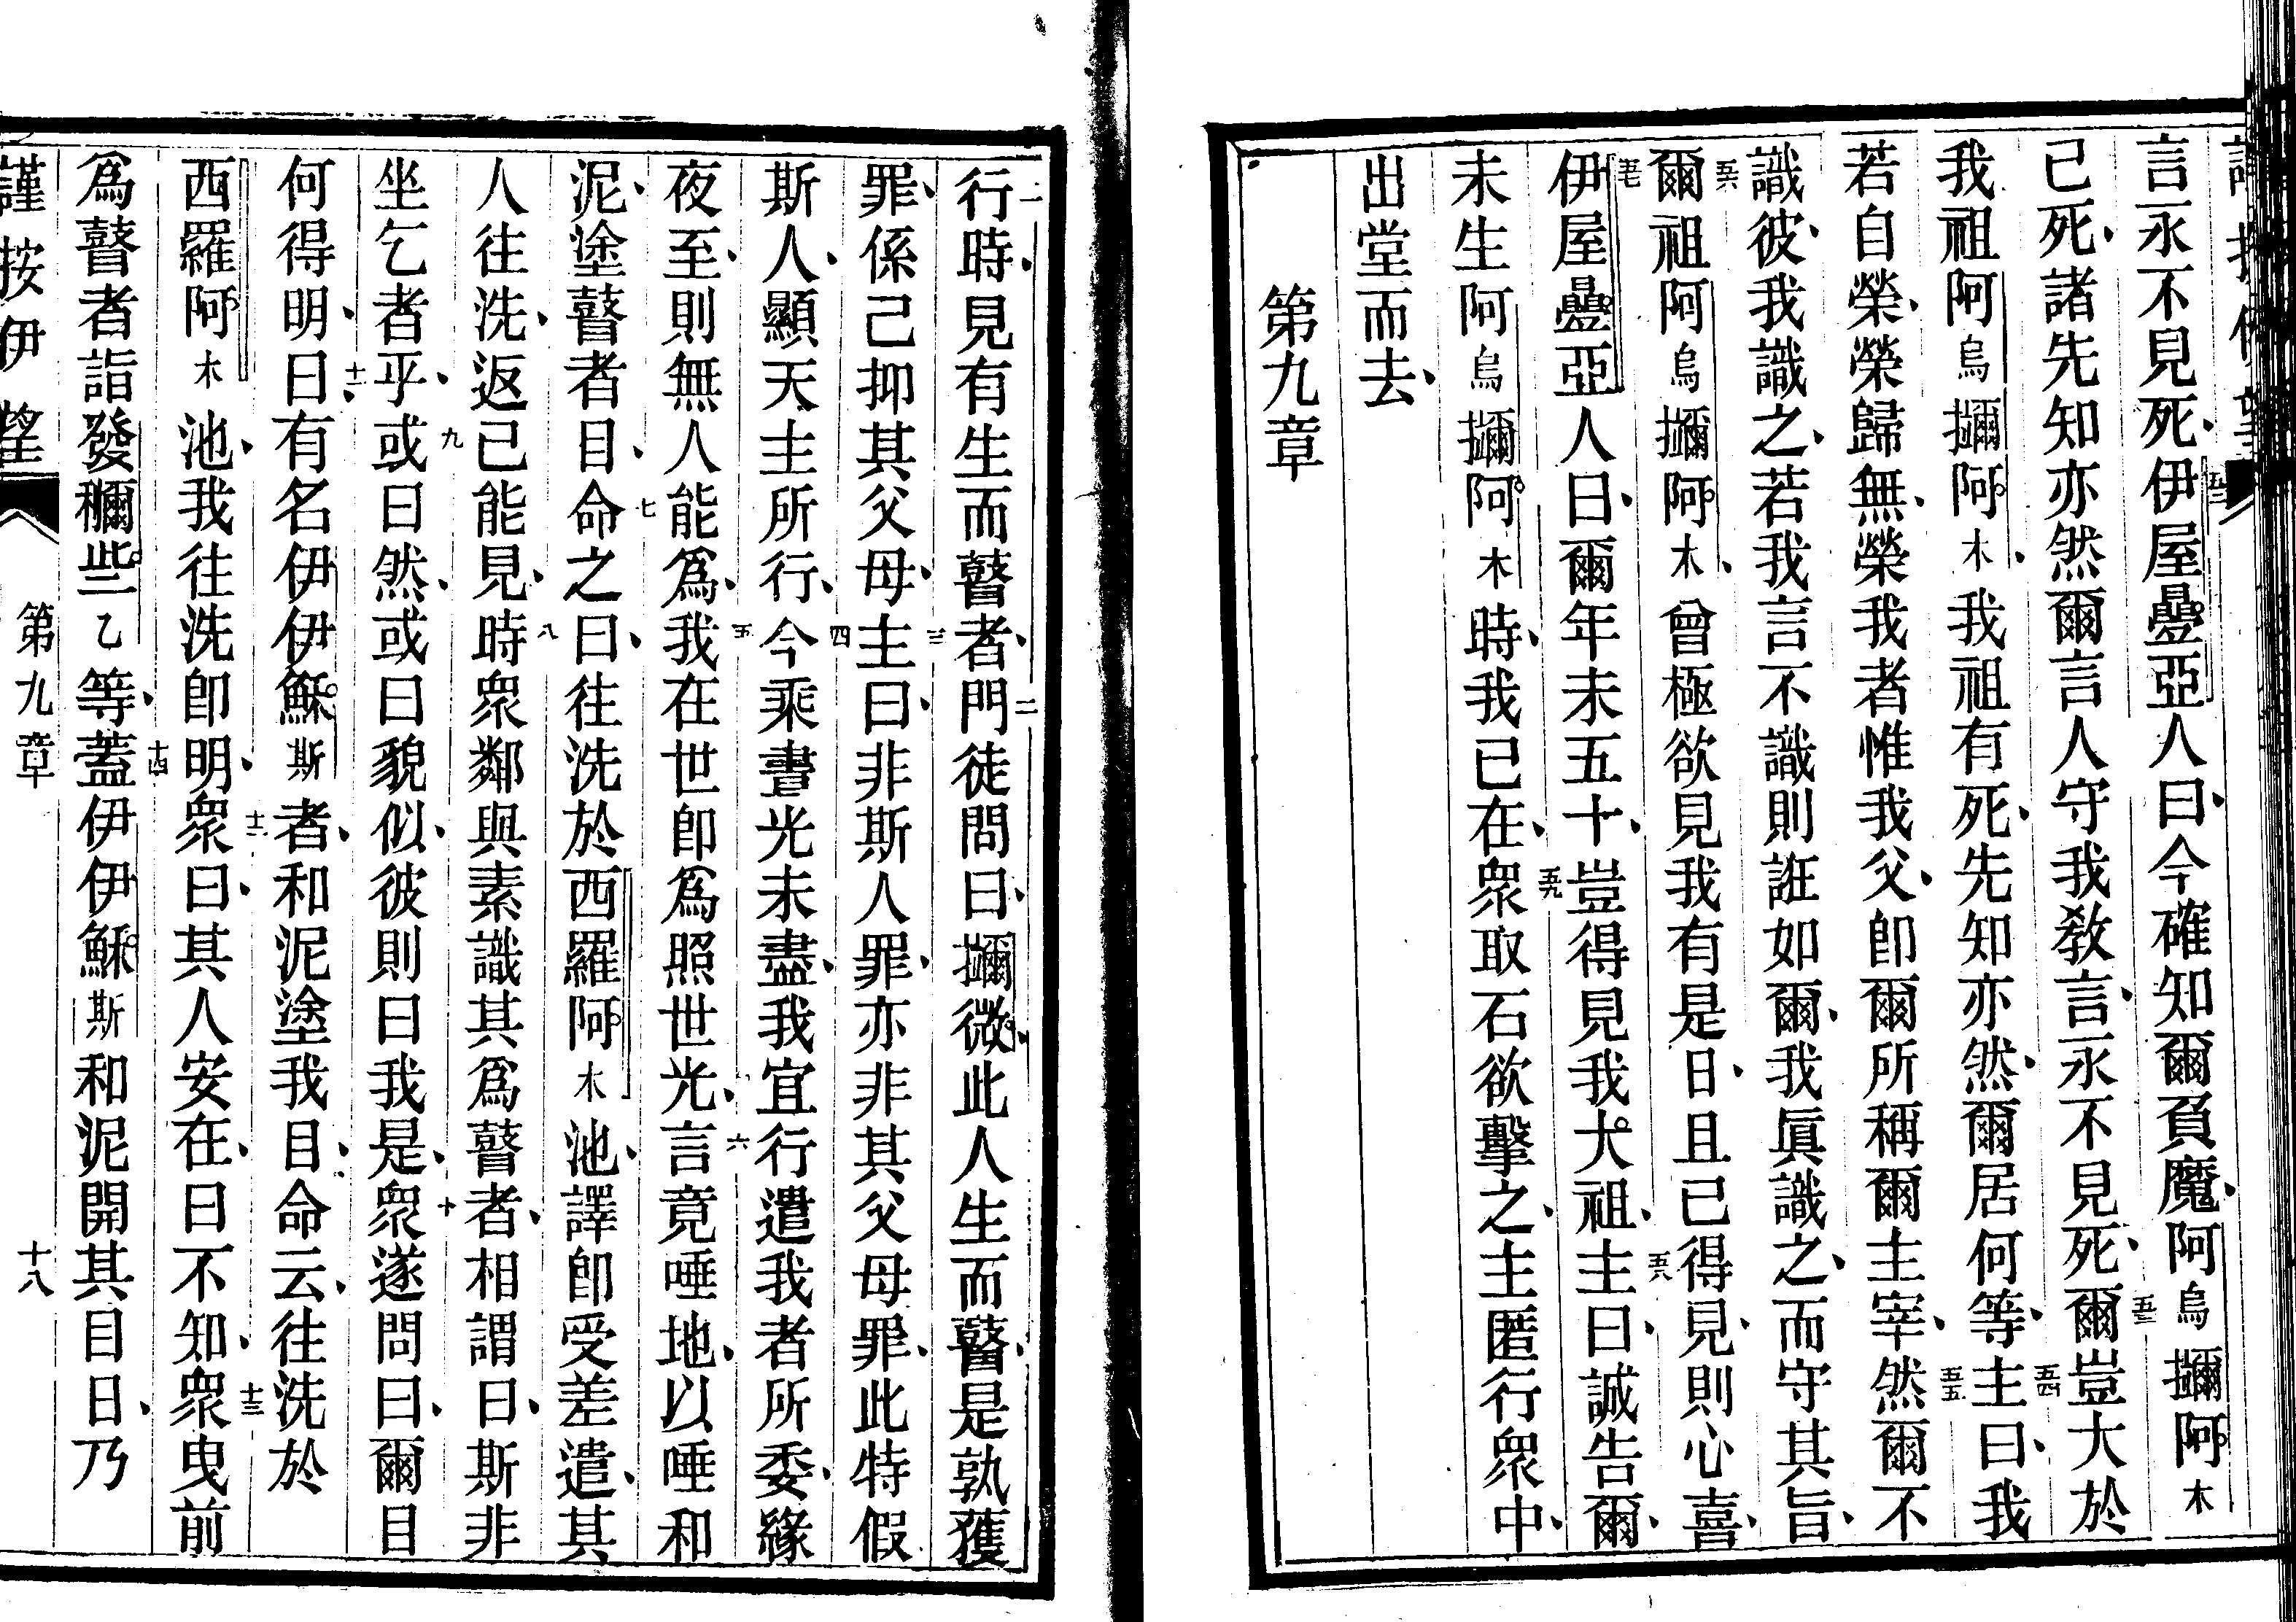 言永不見死伊屋疊亞人曰今確知爾負魔阿烏㩴阿木
己死諸先知亦然爾言人守我教言永不見死爾豈大於
我祖阿烏㩴阿木我祖有死先知亦然爾居何等主曰我
若自榮榮歸無榮我者惟我父卽爾所稱爾主宰然爾不
識彼我識之若我言不識則誑如爾我眞識之而守其旨
爾祖阿烏㩴阿木曾極欲見我有是日且已得見則心喜
伊屋疊亞人曰爾年未五十豈得見我大祖主曰誠告爾
未生阿烏㩴阿木時我已在衆取石欲擊之主匿行衆中
出堂而去
第九章
行時見有生而瞽者門徒問曰㩴微此人生而瞽是孰獲
罪係己抑其父母主曰非斯人罪亦非其父母罪此特假
斯人顯天主所行今乘晝光未盡我宜行遣我者所委緣
夜至則無人能爲我在世卽爲照世光言竟唾地以唾和
泥塗瞽者目命之曰往洗於西羅阿木池譯卽受差遣其
人往洗返已能見時衆鄰與素識其爲瞽者相謂曰斯非
坐乞者乎或曰然或曰貌似彼則曰我是衆遂問曰爾目
何得明曰有名伊伊穌斯者和泥塗我目命云往洗於
西羅阿木池我往洗卽明衆曰其人安在曰不知衆曳前
爲瞽者詣發穪些乙等蓋伊伊穌斯和泥開其目日乃
謹按伊望 第九章 十八